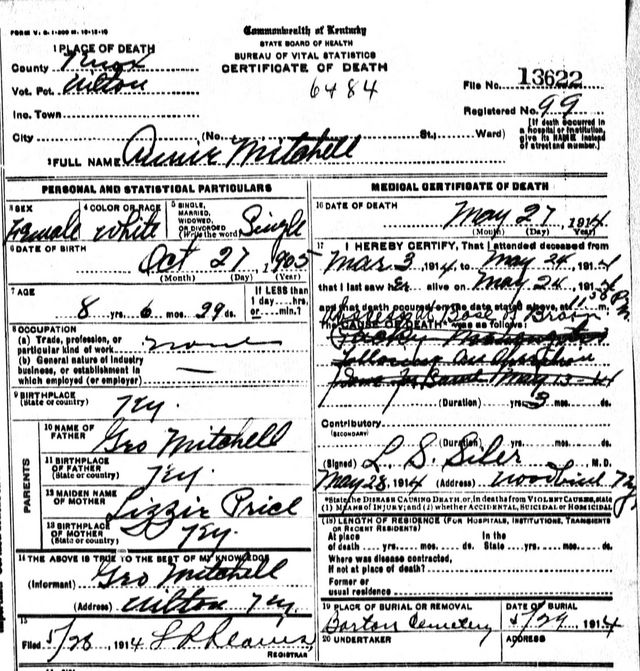 FORM V. S. 1-200 M. 10-12-10
Commonwealth of Kentucky
STATE BOARD OF HEALTH
BUREAU OF VITAL STATISTICS
CERTIFICATE OF DEATH
1 PLACE OF DEATH
County Knox
Vot. Pct. Wilton
Inc. Town
City (No. St.; Ward)
6484
File No. 13622
Registered No. 99
[If death occurred in a hospital or institution, give its NAME instead of street and number.]
2 FULL NAME Annie Mitchell
PERSONAL AND STATISTICAL PARTICULARS
3 SEX Female
4 COLOR OR RACE White
5 SINGLE, MARRIED, WIDOWED, OR DIVORCED (Write the word) Single
6 DATE OF BIRTH Oct 27, 1905
(Month) (Day) (Year)
7 AGE 8 yrs. 6 mos. 29 ds.
If LESS than 1 day....hrs. or....min.?
8 OCCUPATION
(a) Trade, profession, or particular kind of work none
(b) General nature of industry business, or establishment in which employed (or employer) —
9 BIRTHPLACE (State or country) Ky.
PARENTS
10 NAME OF FATHER Geo Mitchell
11 BIRTHPLACE OF FATHER (State or country) Ky.
12 MAIDEN NAME OF MOTHER Lizzie Price
13 BIRTHPLACE OF MOTHER (State or country) Ky.
14 THE ABOVE IS TRUE TO THE BEST OF MY KNOWLEDGE
(Informant) Geo Mitchell
(Address) Wilton Ky.
15
Filed 5/28, 1914
REGISTRAR
MEDICAL CERTIFICATE OF DEATH
16 DATE OF DEATH May 27, 1914
(Month) (Day) (Year)
17 I HEREBY CERTIFY, That I attended deceased from
Mar. 3, 1914 to May 24, 1914
that I last saw her alive on May 24, 1914
and that death occurred, on the date stated above, at 11:58 P.m.
The CAUSE OF DEATH* was as follows:
Abscess at Base of Brain
Following an Operation
May 13-14
(Duration) yrs. 3 mos. ds.
Contributory
(SECONDARY)
(Duration) yrs. mos. ds.
(Signed) L. S. Siler, M. D.
May 28, 1914 (Address) Woodbine Ky.
*State the DISEASE CAUSING DEATH, or, in deaths from VIOLENT CAUSES, state (1) MEANS OF INJURY; and (2) whether ACCIDENTAL, SUICIDAL or HOMICIDAL
(18) LENGTH OF RESIDENCE (FOR HOSPITALS, INSTITUTIONS, TRANSIENTS OR RECENT RESIDENTS)
At place of death yrs. mos. ds. In the State yrs. mos. ds.
Where was disease contracted, if not at place of death?
Former or usual residence
19 PLACE OF BURIAL OR REMOVAL Barton Cemetery
DATE OF BURIAL 5/29, 1914
20 UNDERTAKER
ADDRESS